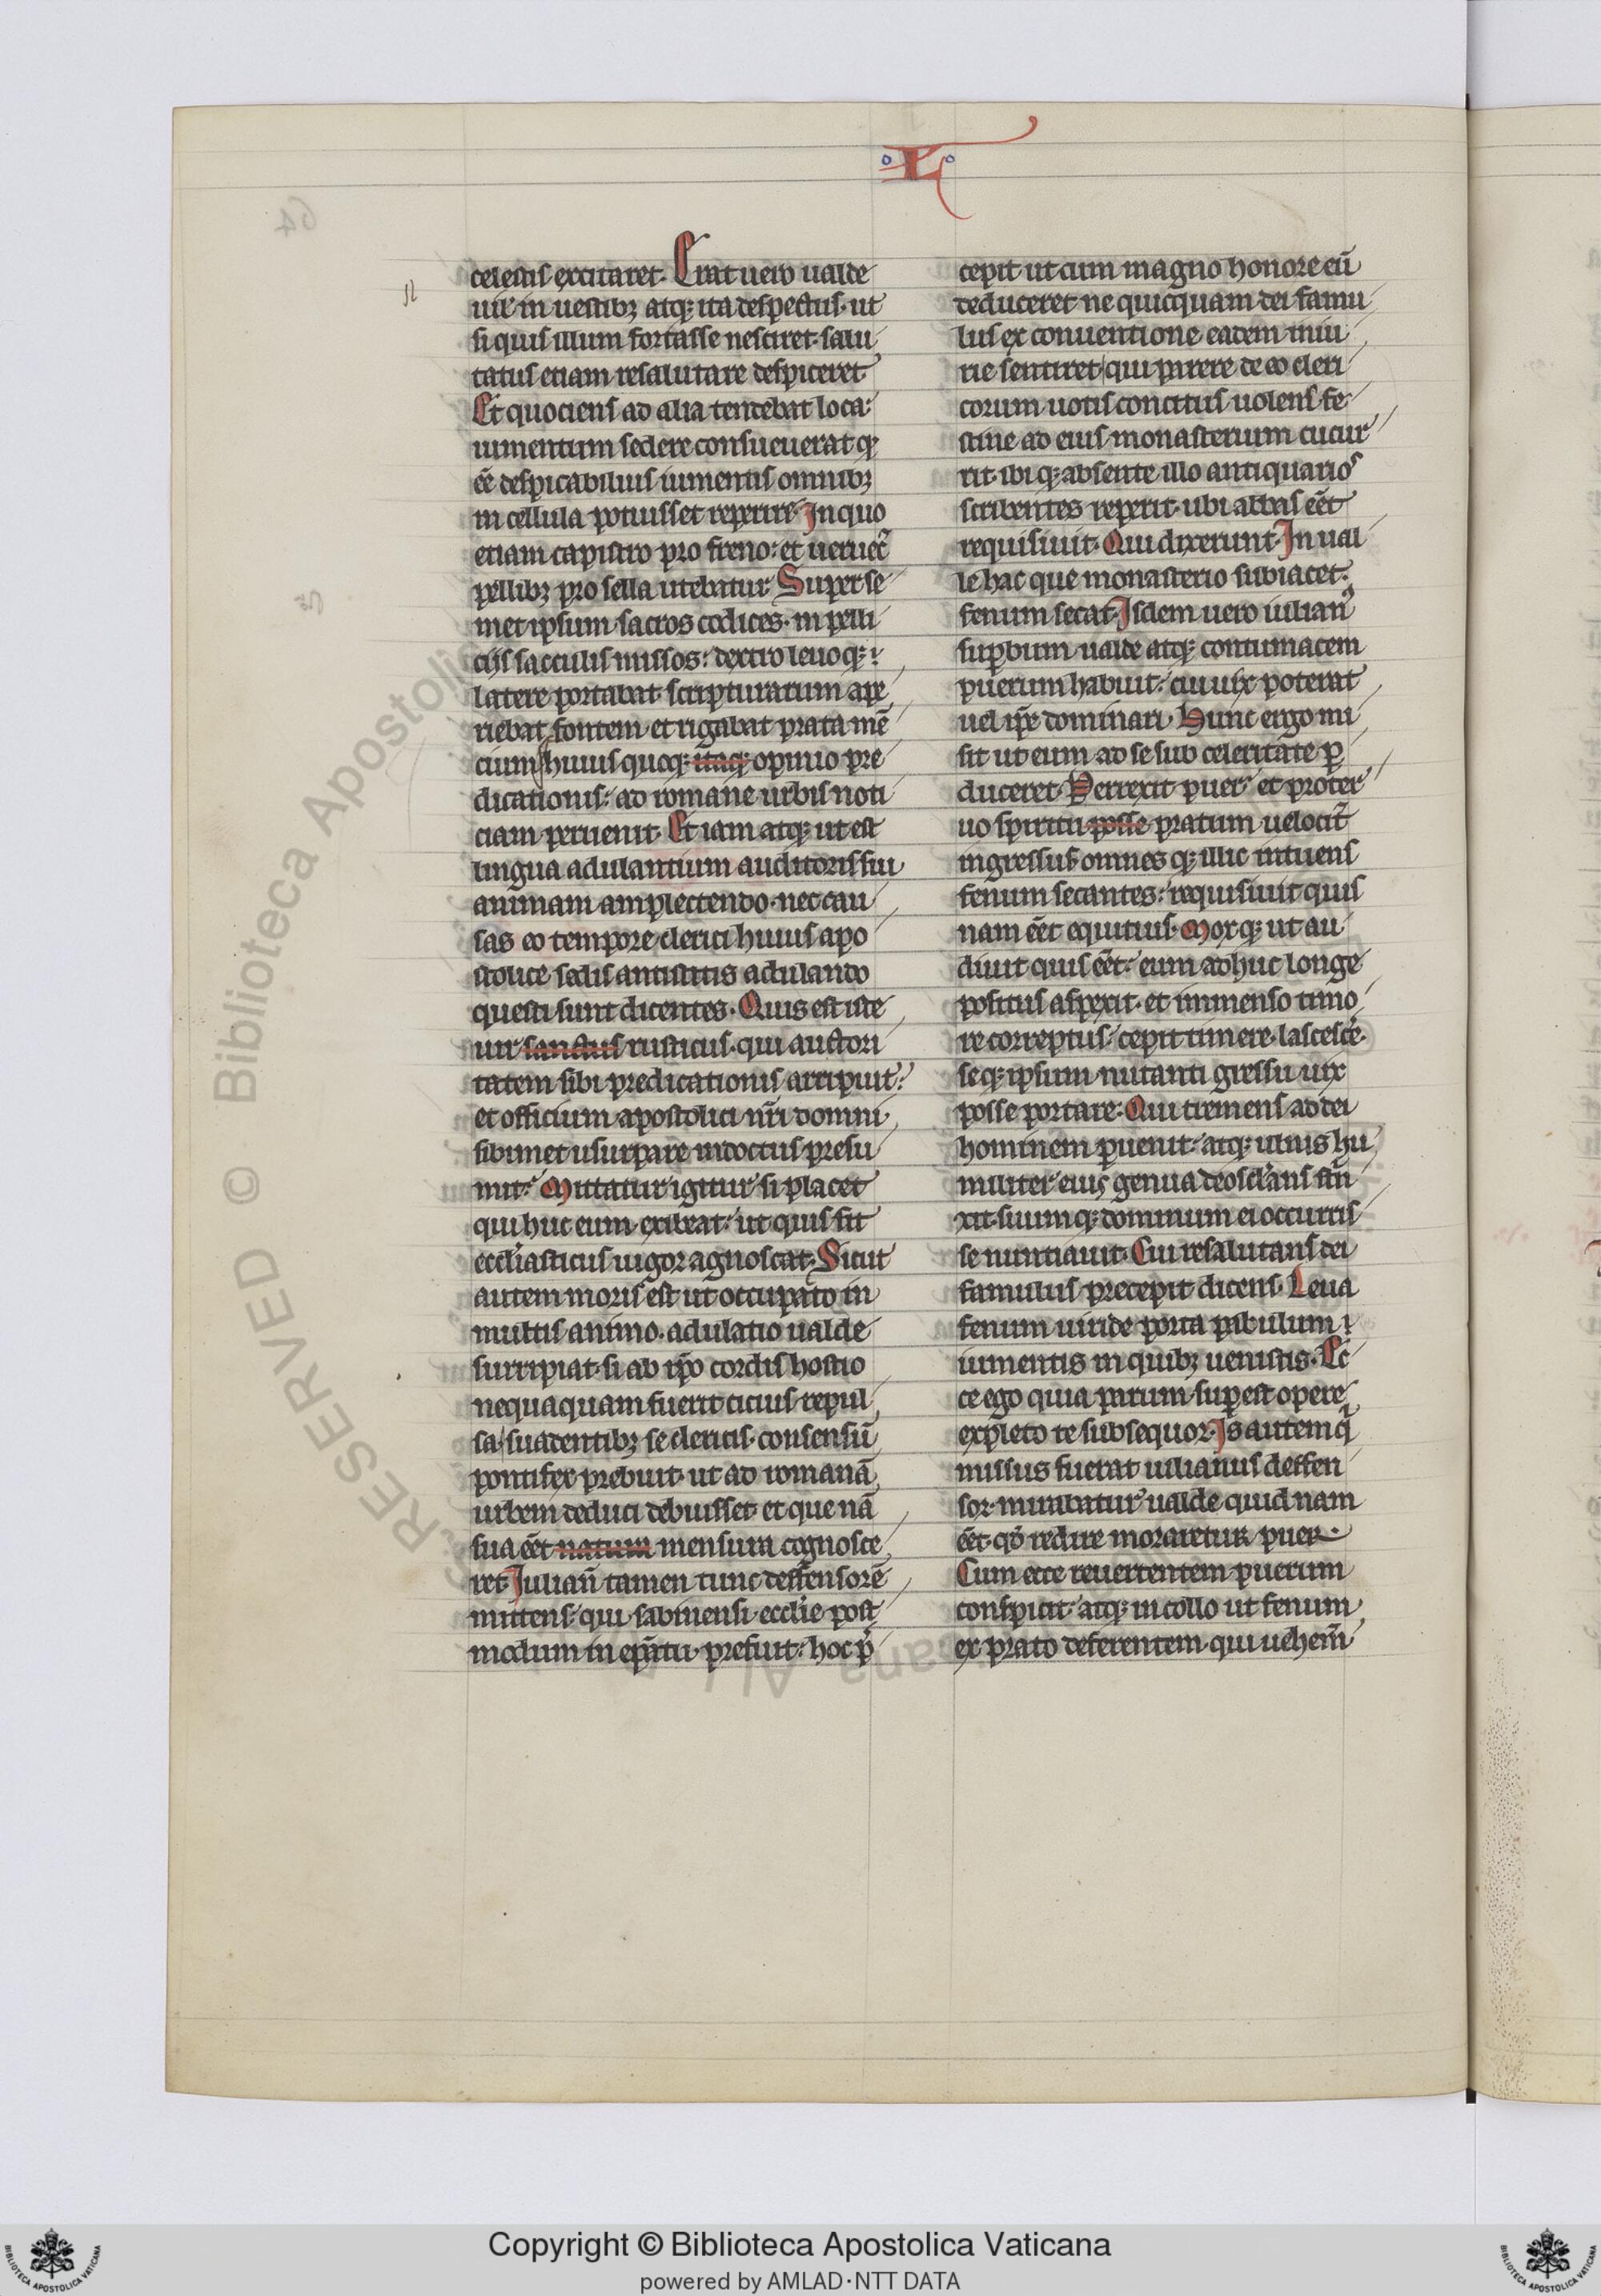 L
celestis excitaret. Erat uero ualde
uil' in uestibꝫ atqꝫ ita despectus. ut
si quis illum fortasse nesciret. salu
tatus etiam resalutare despiceret
Et quociens ad alia tendebat loca:
iumentum sedere consueuerat qd̕
eē despicabilius iumentis omnibꝫ
in cellula potuisset reperire. In quo
etiam capistro pro freno: et ueruec̄
pellibꝫ pro sella utebatur. Super se
met ipsum sacros codices. in pelli
ciis sacculis missos: dextro leuoqꝫ
latere portabat. scripturarum ape
riebat fontem. et rigabat prata mē
cium huius quoqꝫ itaqꝫ opinio pre
dicationis: ad romane urbis noti
ciam peruenit. Et iam atqꝫ ut est
lingua adulantium auditoris sui
animam amplectendo. nec cau
sas eo tempore clerici huius apo
stolice sedis antistitis adulando
questi sunt dicentes. Quis est iste
uir sanctus rusticus. qui auctori
tatem sibi predicationis arripuit:
et officium apostolici nr̄i domni
sibimet usurpare indoctus presu
mit: Mittatur igitur si placet
qui huc eum exibeat: ut quis sit
ecclīasticus uigor agnoscat. Sicut
autem moris est ut occupato in
multis animo. adulatio ualde
surripiat. si ab ip̄o cordis hostio
nequaquam fuerit cicius repul
sa suadentibꝫ se clericis. consensū
pontifex prebuit. ut ad romanā
urbem deduci debuisset. et que nā
sua eēt natura mensura cognosce
ret. Julianū tamen tunc deffensorē
mittens: qui sabinensi ecclīe post
modum in ep̄atu prefuit: hoc p̄
cepit ut cum magno honore eū
deduceret ne quicquam dei famu
lus ex conuentione eadem iniu
rie sentiret qui parere de eo cleri
corum uotis concitus uolens. fe
stine ad eius monasterium cucur
rit. ibi qꝫ absente illo antiquarios
scribentes reperit. ubi abbas eēt
requisiuit. Qui dixerunt. In ual
le hac que monasterio subiacet:
fenum secat. Isdem uero iulianꝰ
suꝑbum ualde atqꝫ contumacem
puerum habuit: cui uix poterat
uel ip̄e dominari. Hunc ergo mi
sit ut eum ad se sub celeritate ꝑ
duceret. Perrexit puer: et proter
uo spiritu posse pratum uelocit̄
ingressus. omnes qꝫ illic intuens
fenum secantes: requisiuit quis
nam eēt equitius. Mox qꝫ ut au
diuit quis eēt: eum adhuc longe
positus aspexit. et immenso timo
re correptus: cepit timere. lascesce̕.
seqꝫ ipsum nutanti gressu uix
posse portare: Qui tremens ad dei
hominem ꝑuenit: atqꝫ ulnis hu
militer eius genua deoscl̄ans strī
xit. suumqꝫ dominum ei occurris
se nuntiauit. Cui resalutans dei
famulus precepit dicens. Leua
fenum uiride porta pabulum
iumentis in quibꝫ uenistis. Ec
ce ego quia parum suꝑest opere
expleto te subsequor. Is autem q̄
missus fuerat iulianus deffen
sor. mirabatur ualde quid nam
eēt. qd̕ redire moraretur puer.
Cum ecce reuertentem puerum
conspicit: atqꝫ in collo ut fenum
ex prato deferentem. qui uehem̄
RESERVED © Biblioteca Apostolica
Copyright © Biblioteca Apostolica Vaticana
powered by AMLAD·NTT DATA